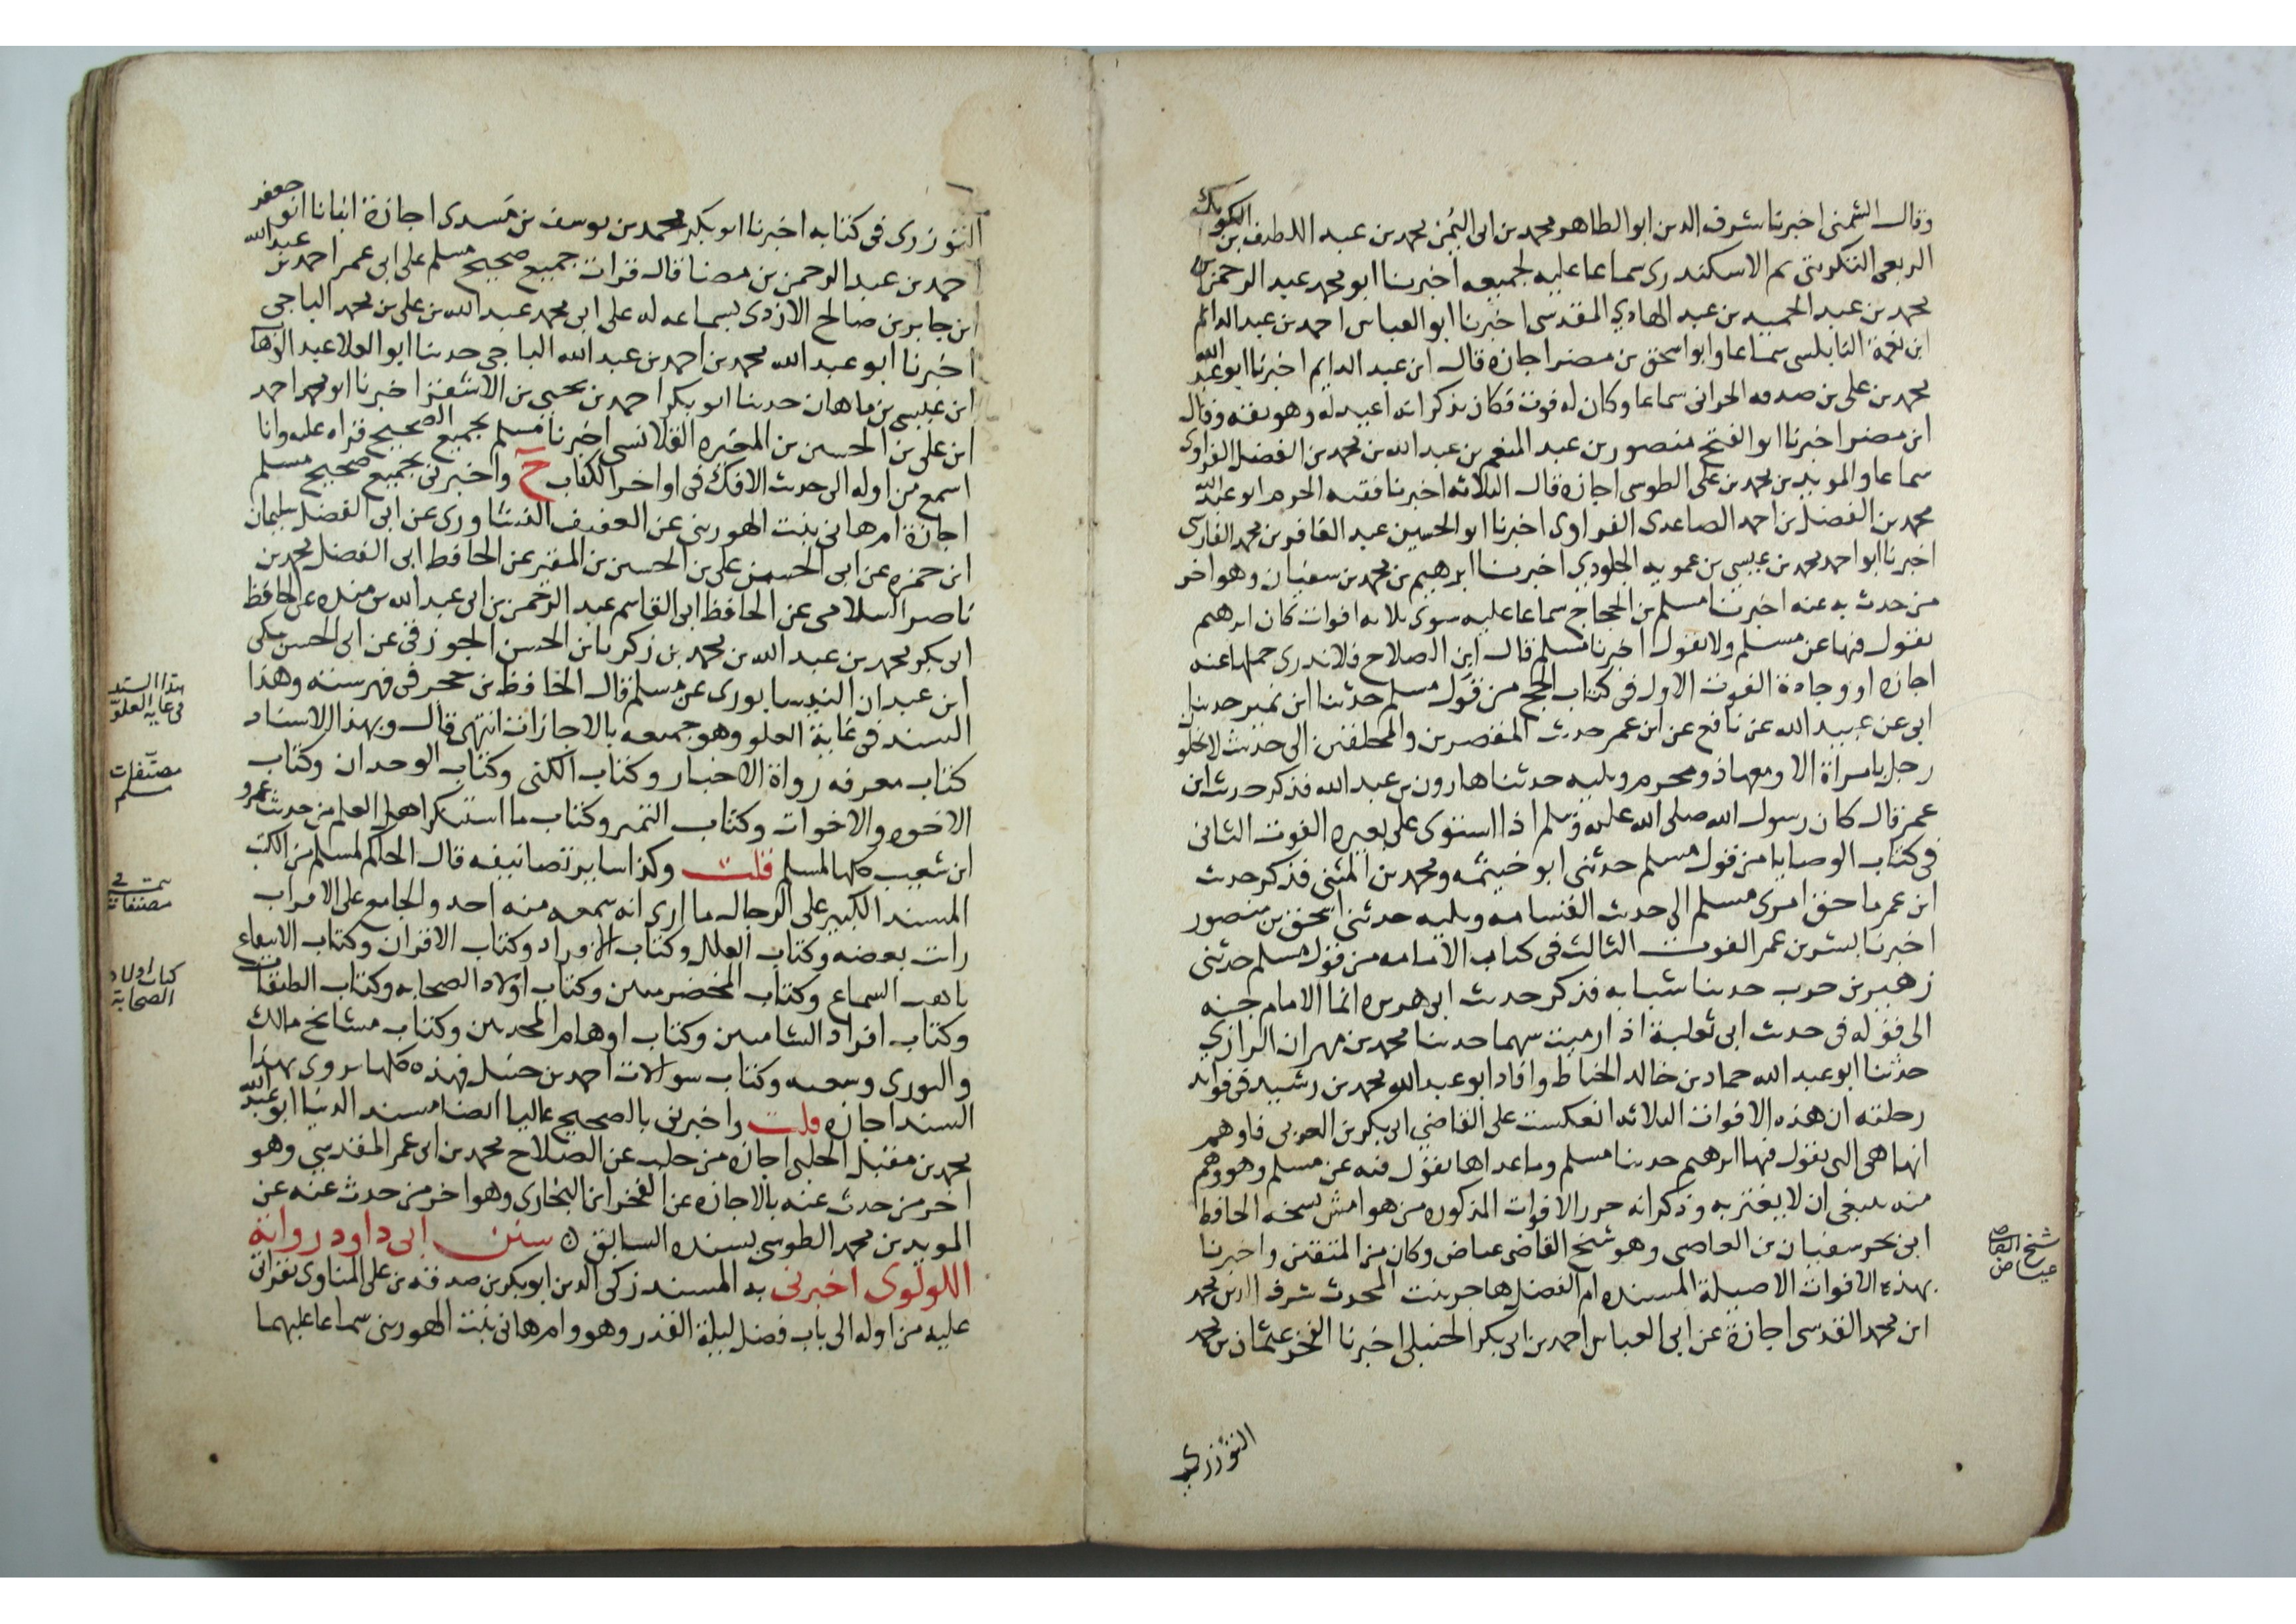 وقال الشمنى اخبرنا شرف الدين ابو الطاهر محمد بن ابى اليُمن محمد بن عبد اللطيف بن الكويك
الربعى التكريتى ثم الاسكندرى سماعا عليه لجميعه اخبرنا ابو محمد عبد الرحمن بن
محمد بن عبد الحميد بن عبد الهادي المقدسى اخبرنا ابو العباس احمد بن عبد الدائم
ابن نعمة النابلسى سماعا وابو اسحق بن مضر اجازه قال ابن عبد الدايم اخبرنا ابو عبد الله
محمد بن على بن صدقه الحرانى سماعا وكان له فوت فكان يذكر انه اعيد له وهو ثقه وقال
ابن مضر اخبرنا ابو الفتح منصور بن عبد المنعم بن عبد الله بن محمد بن الفضل الفراوى
سماعا والمويد بن محمد بن على الطوسى اجازه قال الثلاثه اخبرنا فقيه الحرم ابو عبد الله
محمد بن الفضل بن احمد الصاعدى الفراوى اخبرنا ابو الحسين عبد الغافر بن محمد الفارسى
اخبرنا ابو احمد محمد بن عيسى بن عمويه الجلودي اخبرنا ابرهيم بن محمد بن سفيان وهو اخر
من حدث به عنه اخبرنا مسلم بن الحجاج سماعا عليه سوى ثلاثه افوات كان ابرهيم
يقول فيها عن مسلم ولا يقول اخبرنا مسلم قال ابن الصلاح فلا ندرى حملها عنه
اجازه او وجادة الفوت الاول فى كتاب الحج من قول مسلم حدثنا ابن نمير حدثنا
ابى عن عبيد الله عن نافع عن ابن عمر حديث المقصرين والمحلقين الى حديث لا يخلو
رجل بامراة الا ومعها ذو محرم ويليه حدثنا هارون بن عبد الله فذكر حديث ابن
عمر قال كان رسول الله صلى الله عليه وسلم اذا استوى على بعيره الفوت الثانى
فى كتاب الوصايا من قول مسلم حدثنى ابو خيثمه ومحمد بن المثنى فذكر حديث
ابن عمر ما حق امرى مسلم الى حديث القسامه ويليه حدثنى اسحق بن منصور
اخبرنا بشر بن عمر الفوت الثالث فى كتاب الامامه من قول مسلم حدثنى
زهير بن حرب حدثنا شبابه فذكر حديث ابى هريره انما الامام جنه
الى قوله فى حديث ابى ثعلبة اذا رميت سهما حدثنا محمد بن مهران الرازي
حدثنا ابو عبد الله حماد بن خالد الخياط وافاد ابو عبد الله محمد بن رشيد فى فوايد
رحلته ان هذه الافوات الثلاثه انعكست على القاضي ابى بكر بن العربى فاوهم
انها هى التى يقول فيها ابرهيم حدثنا مسلم وما عداها يقول فيه عن مسلم وهو وهم
منه ينبغى ان لا يغتر به وذكر انه حرر الافوات المذكوره من هوامش نسخه الحافظ
ابى بحر سفيان بن العاصى وهو شيخ القاضى عياض وكان من المتقنين واخبرنا
بهذه الافوات الاصيلة المسنده ام الفضل هاجر بنت المحدث شرف الدين محمد
ابن محمد القدسى اجازة عن ابى العباس احمد بن ابى بكر الحنبلى اخبرنا الفخر عثمان بن محمد
التوزرى
شيخ القاضى
عياض
التوزرى فى كتابه اخبرنا ابو بكر محمد بن يوسف بن مَسدى اجازة انبانا ابو جعفر
احمد بن عبد الرحمن بن مضا قال قرات جميع صحيح مسلم على ابى عمر احمد بن عبد الله
ابن جابر بن صالح الازدى بسماعه له على ابى محمد عبد الله بن على بن محمد الباجى
اخبرنا ابو عبد الله محمد بن احمد بن عبد الله الباجى حدثنا ابو العلا عبد الوهاب
ابن عيسى بن ماهان حدثنا ابو بكر احمد بن يحيى بن الاشقر اخبرنا ابو محمد احمد
ابن على بن الحسين بن المغيره القلانسى اخبرنا مسلم بجميع الصحيح قراه عليه وانا
اسمع من اوله الى حديث الافك فى اواخر الكتاب ح واخبرتنى بجميع صحيح مسلم
اجازة ام هانى بنت الهورينى عن العفيف النشاورى عن ابى الفضل سليمان
ابن حمزه عن ابى الحسن على بن الحسين بن المقير عن الحافظ ابى الفضل محمد بن
ناصر السلامى عن الحافظ ابى القاسم عبد الرحمن بن ابى عبد الله بن منده عن الحافظ
ابى بكر محمد بن عبد الله بن محمد بن زكريا بن الحسن الجوزقى عن ابى الحسن مكى
ابن عبدان النيسابورى عن مسلم قال الحافظ بن حجر فى فهرسته وهذا
السند فى غاية العلو وهو جميعه بالاجازات انتهى قال وبهذا الاسناد
كتاب معرفه رواة الاخبار وكتاب الكنى وكتاب الوحدان وكتاب
الاخوه والاخوات وكتاب التمييز وكتاب ما استنكر اهل العلم من حديث عمرو
ابن شعيب كلها لمسلم قلت وكذا ساير تصانيفه قال الحاكم لمسلم من الكتب
المسند الكبير على الرجال ما ارى انه سمعه منه احد والجامع على الابواب
رايت بعضه وكتاب العلل وكتاب الافراد وكتاب الاقران وكتاب الانتفاع
باهب السباع وكتاب المخضرمين وكتاب اولاد الصحابه وكتاب الطبقات
وكتاب افراد الشاميين وكتاب اوهام المحدثين وكتاب مشايخ مالك
والثورى وشعبه وكتاب سوالات احمد بن حنبل فهذه كلها تروى بهذا
السند اجازه قلت واخبرنى بالصحيح عاليا ايضا مسند الدنيا ابو عبد الله
محمد بن مقبل الحلبى اجازه من حلب عن الصلاح محمد بن ابى عمر المقدسي وهو
اخر من حدث عنه بالاجازه عن الفخر ابن البخارى وهو اخر من حدث عنه عن
المويد بن محمد الطوسى بسنده السابق ن سنن ابى داود رواية
اللولوى اخبرنى به المسند زكى الدين ابو بكر بن صدقه بن على المناوى بقراتى
عليه من اوله الى باب فضل ليلة القدر وهو وام هانى بنت الهورينى سماعا عليهما
هذا السند
فى غاية العلوّ
مصنّفات
مسلم
مصنفات
كتاب اولاد
الصحابة